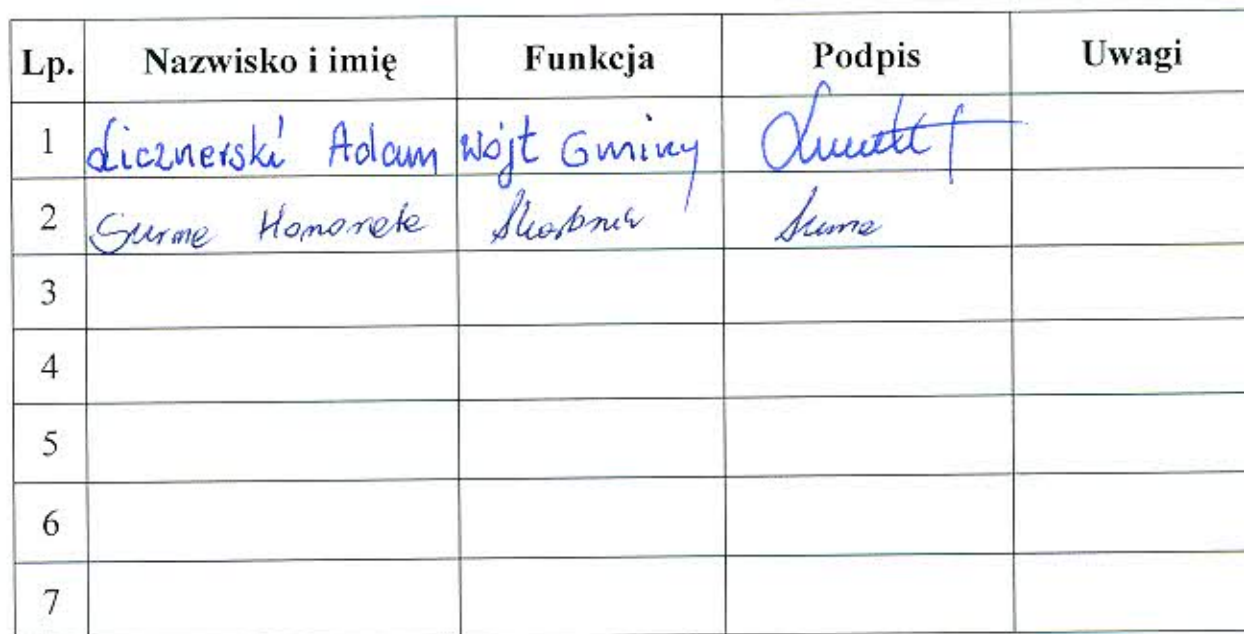 Lp. Nazwisko i imię Funkcja Podpis Uwagi
1 Licznerski Adam Wójt Gminy
2 Surma Honorata Skarbnik Surma
3
4
5
6
7